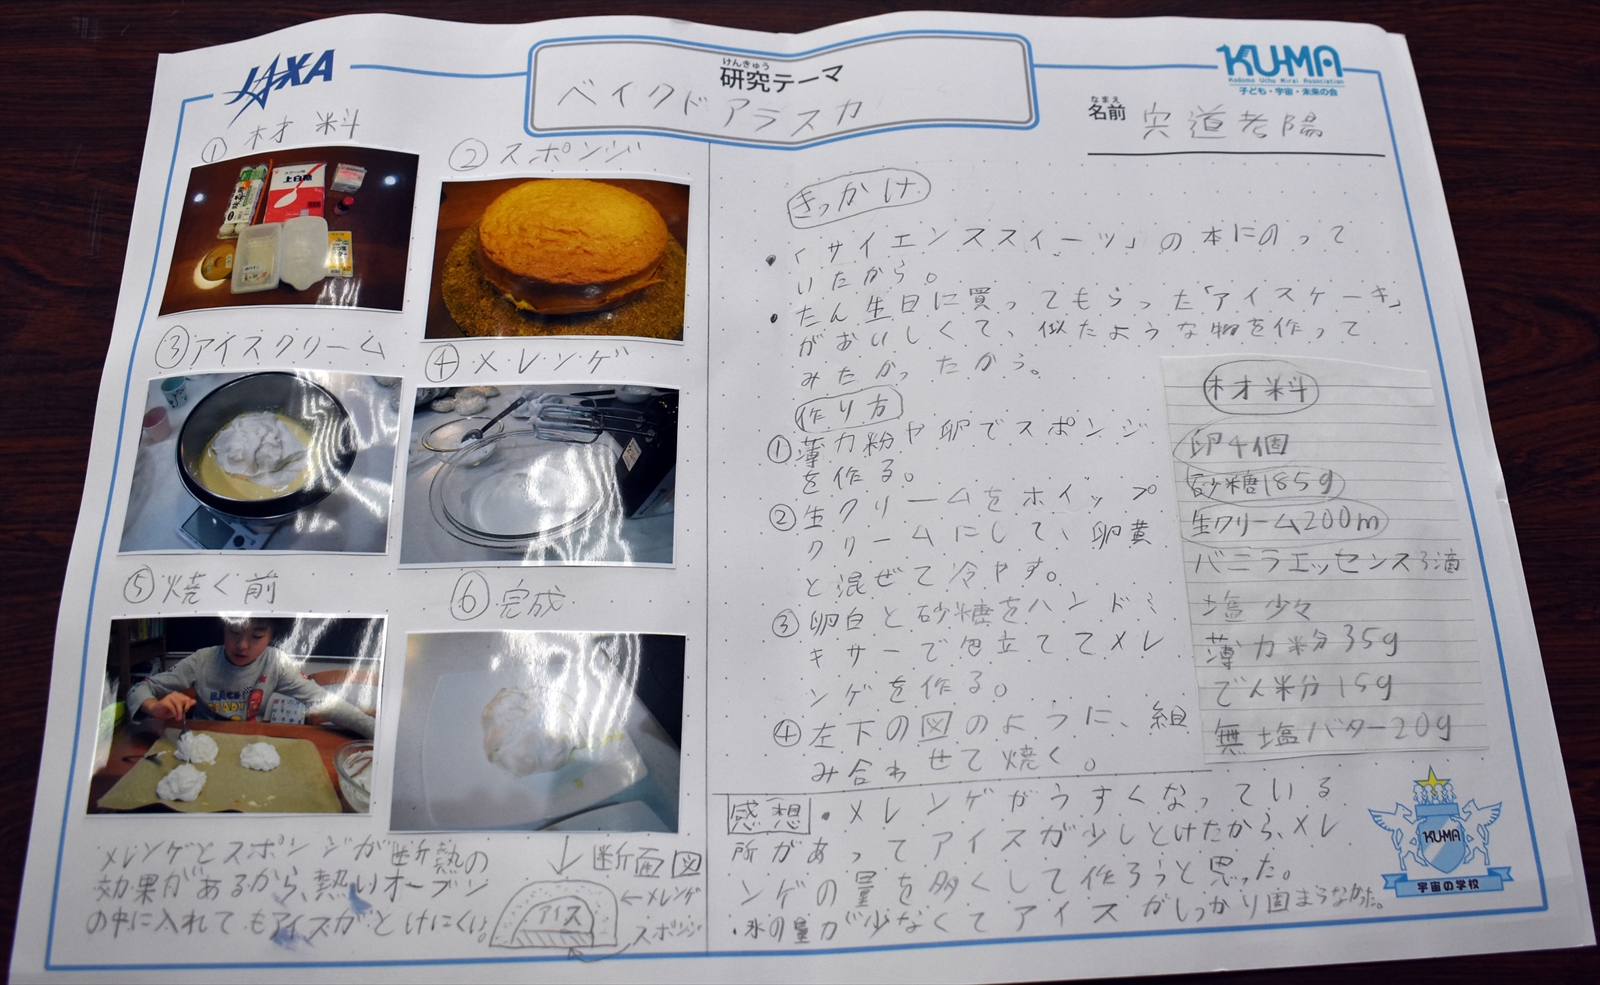 JAXA
けんきゅう
研究テーマ
ベイクドアラスカ
KU-MA
Kodomo Uchu Mirai Association
子ども・宇宙・未来の会
なまえ
名前 宍道考陽
① 材料
上白糖
② スポンジ
③ アイスクリーム
④ メレンゲ
⑤ 焼く前
⑥ 完成
メレンゲとスポンジが断熱の
効果があるから、熱いオーブン
の中に入れてもアイスがとけにくい。
断面図
←メレンゲ
アイス
スポンジ
きっかけ
・「サイエンススイーツ」の本にのって
いたから。
・たん生日に買ってもらった「アイスケーキ」
がおいしくて、似たような物を作って
みたかったから。
作り方
①薄力粉や卵でスポンジ
を作る。
②生クリームをホイップ
クリームにして、卵黄
と混ぜて冷やす。
③卵白と砂糖をハンドミ
キサーで泡立ててメレ
ンゲを作る。
④左下の図のように、組
み合わせて焼く。
材料
卵4個
砂糖185g
生クリーム200m
バニラエッセンス3滴
塩少々
薄力粉35g
でん粉15g
無塩バター20g
感想 ・メレンゲがうすくなっている
所があってアイスが少しとけたから、メレ
ンゲの量を多くして作ろうと思った。
・氷の量が少なくてアイスがしっかり固まらなかった。
KU-MA
宇宙の学校